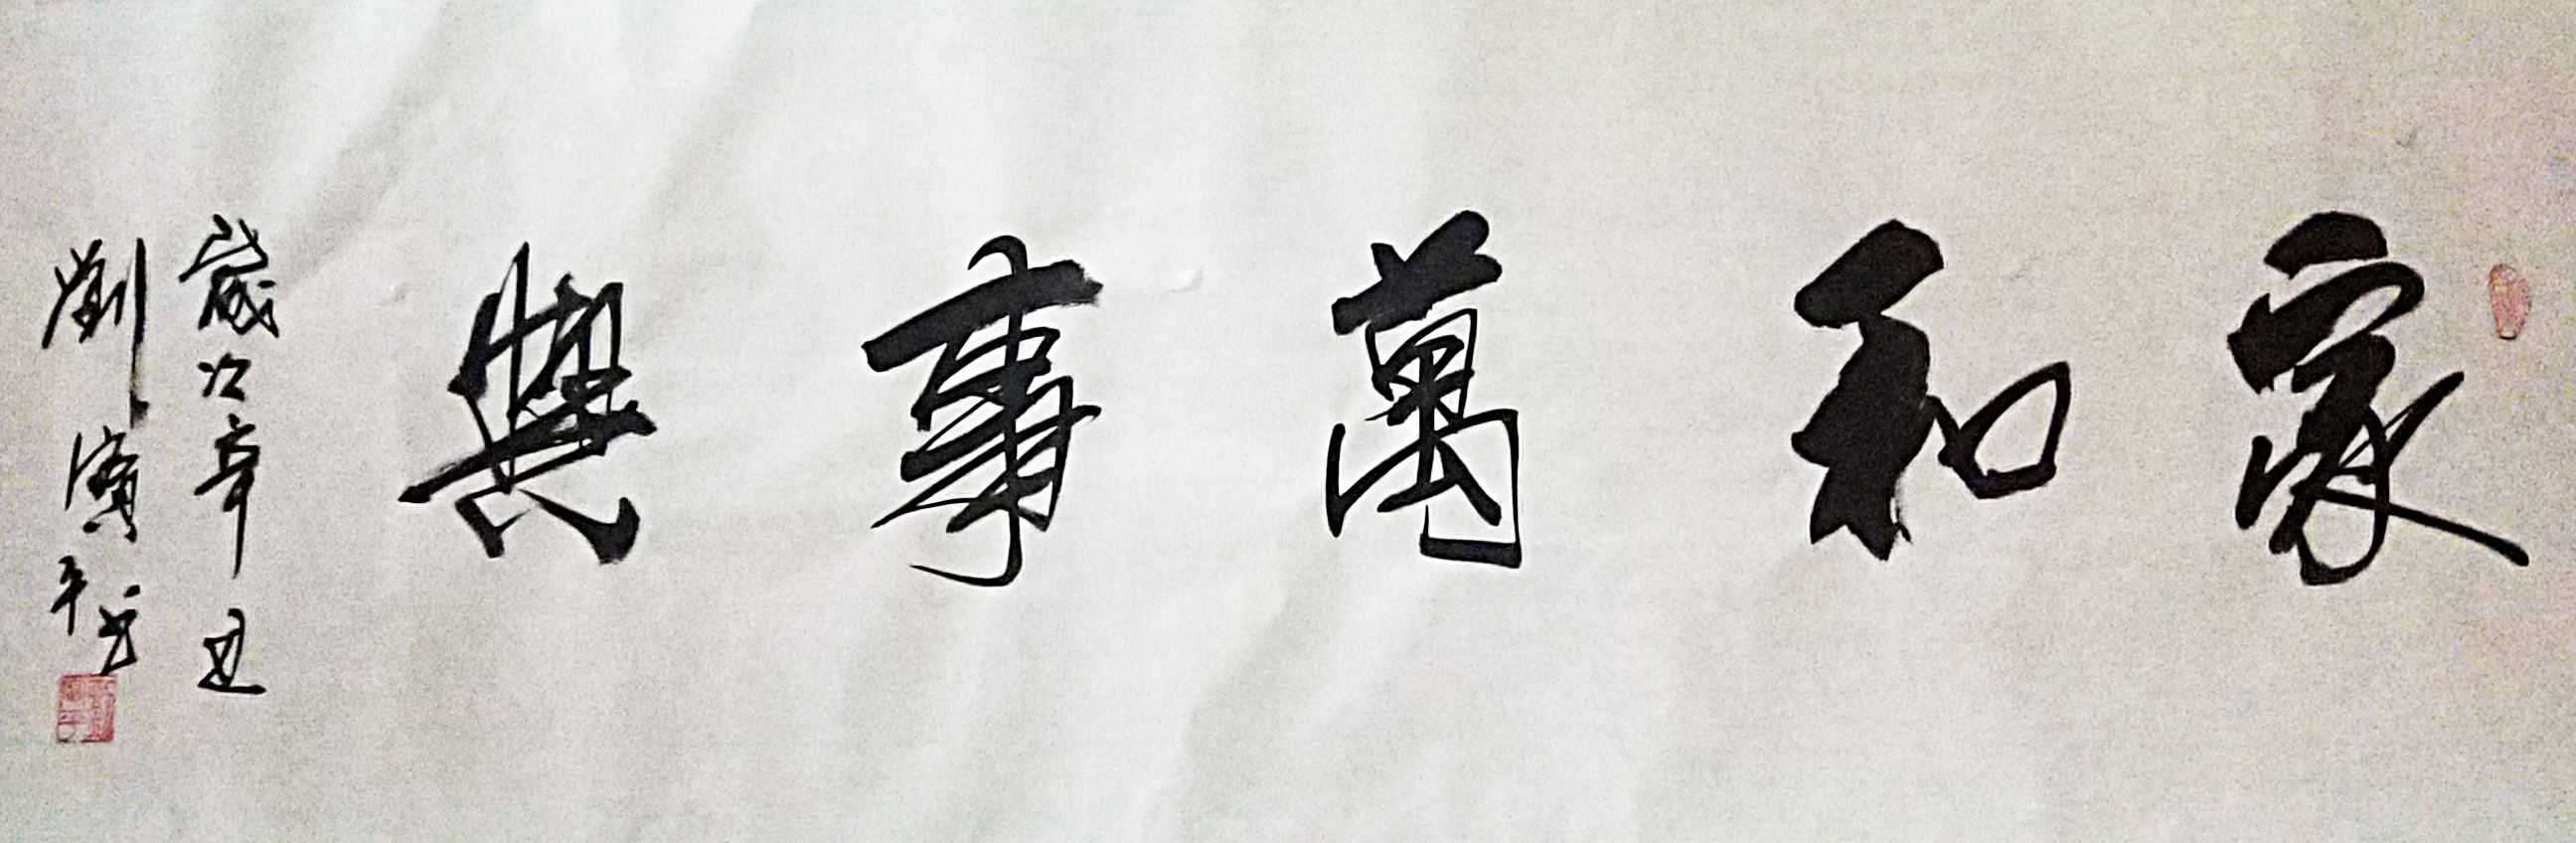 家和萬事興
歲次辛丑
劉濱平書